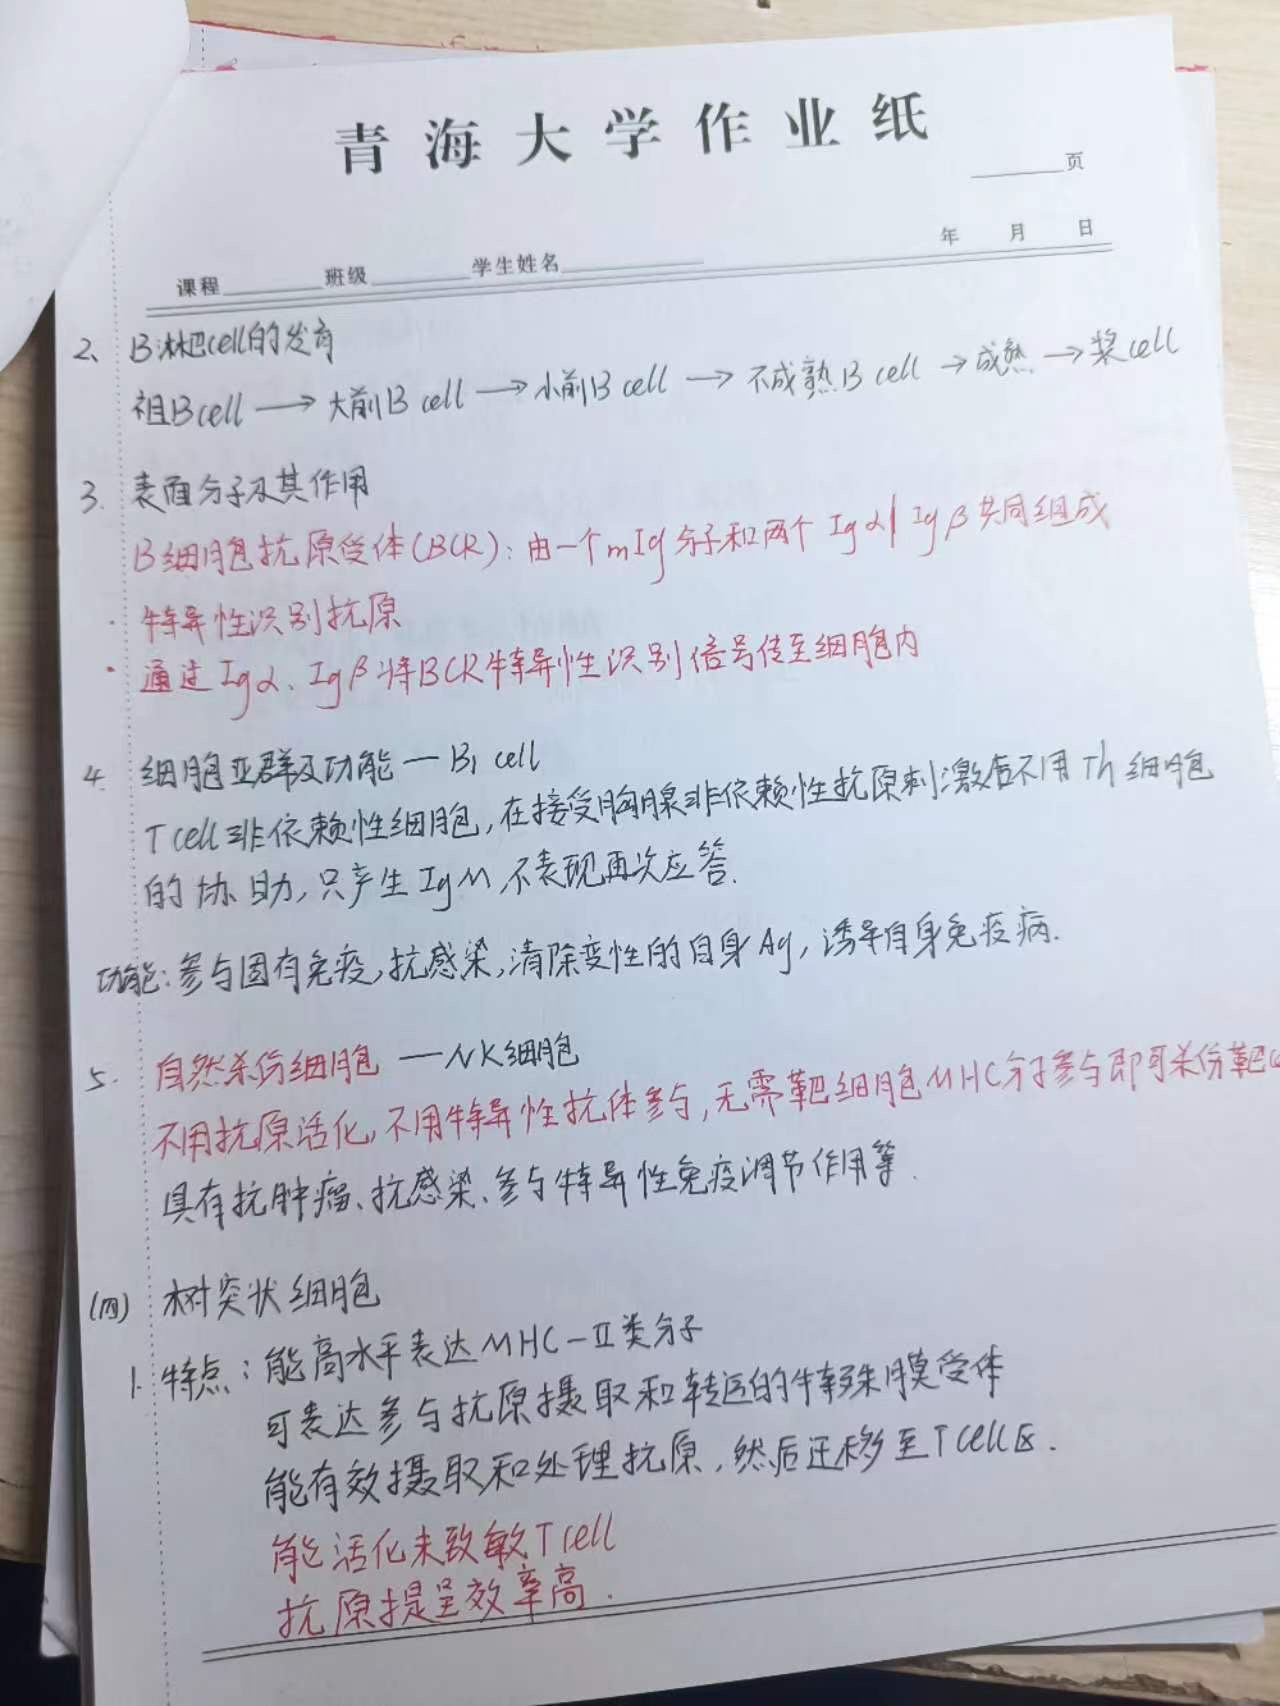 青海大学作业纸
____页
年 月 日
课程____班级____学生姓名____
2、B淋巴cell的发育
祖Bcell → 大前B cell → 小前B cell → 不成熟B cell → 成熟 → 浆cell
3. 表面分子及其作用
B细胞抗原受体(BCR):由一个mIg分子和两个Igα/Igβ共同组成
· 特异性识别抗原
· 通过Igα、Igβ将BCR特异性识别信号传至细胞内
4. 细胞亚群及功能 — B1 cell
T cell非依赖性细胞,在接受胸腺非依赖性抗原刺激后不用Th细胞
的协助,只产生IgM,不表现再次应答.
功能:参与固有免疫,抗感染,清除变性的自身Ag,诱导自身免疫病.
5. 自然杀伤细胞 — NK细胞
不用抗原活化,不用特异性抗体参与,无需靶细胞MHC分子参与即可杀伤靶
具有抗肿瘤、抗感染、参与特异性免疫调节作用等.
(四) 树突状细胞
1. 特点:能高水平表达MHC-Ⅱ类分子
可表达参与抗原摄取和转运的特殊膜受体
能有效摄取和处理抗原,然后迁移至T cell区.
能活化未致敏T cell
抗原提呈效率高.